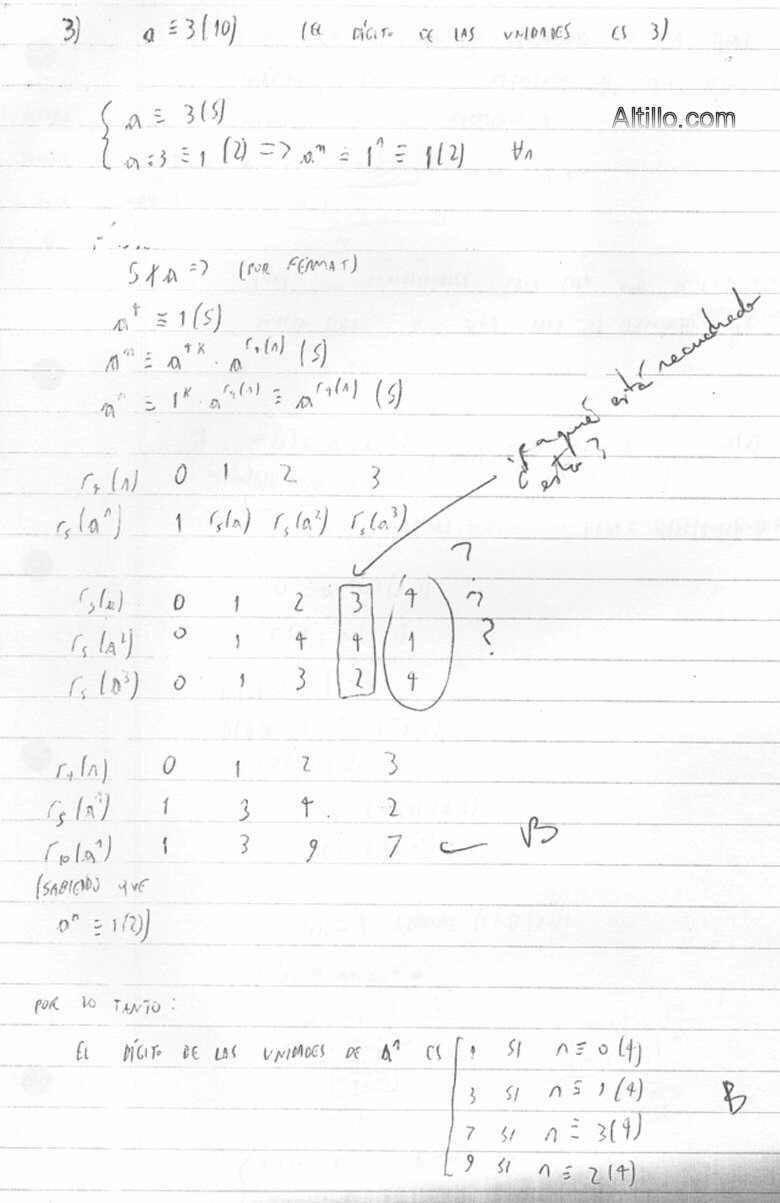 3) a ≡ 3(10) (EL DÍGITO DE LAS UNIDADES ES 3)
Altillo.com
a ≡ 3(5)
a ≡ 3 ≡ 1 (2) => aⁿ ≡ 1ⁿ ≡ 1(2) ∀n
5∤a => (POR FERMAT)
a⁴ ≡ 1(5)
aⁿ ≡ a⁴ᴷ . a^r₄(n) (5)
aⁿ ≡ 1ᴷ . a^r₄(n) ≡ a^r₄(n) (5)
¿a que está recuadrado
esto?
r₄(n) 0 1 2 3
r₅(aⁿ) 1 r₅(a) r₅(a²) r₅(a³)
r₅(a) 0 1 2 3 4 ?
r₅(a²) 0 1 4 4 1 ?
r₅(a³) 0 1 3 2 4 ?
r₄(n) 0 1 2 3
r₅(aⁿ) 1 3 4 2
r₁₀(aⁿ) 1 3 9 7 B
(SABIENDO QUE
aⁿ ≡ 1(2))
POR LO TANTO:
EL DÍGITO DE LAS UNIDADES DE aⁿ ES 1 SI n ≡ 0(4)
3 SI n ≡ 1(4) B
7 SI n ≡ 3(4)
9 SI n ≡ 2(4)